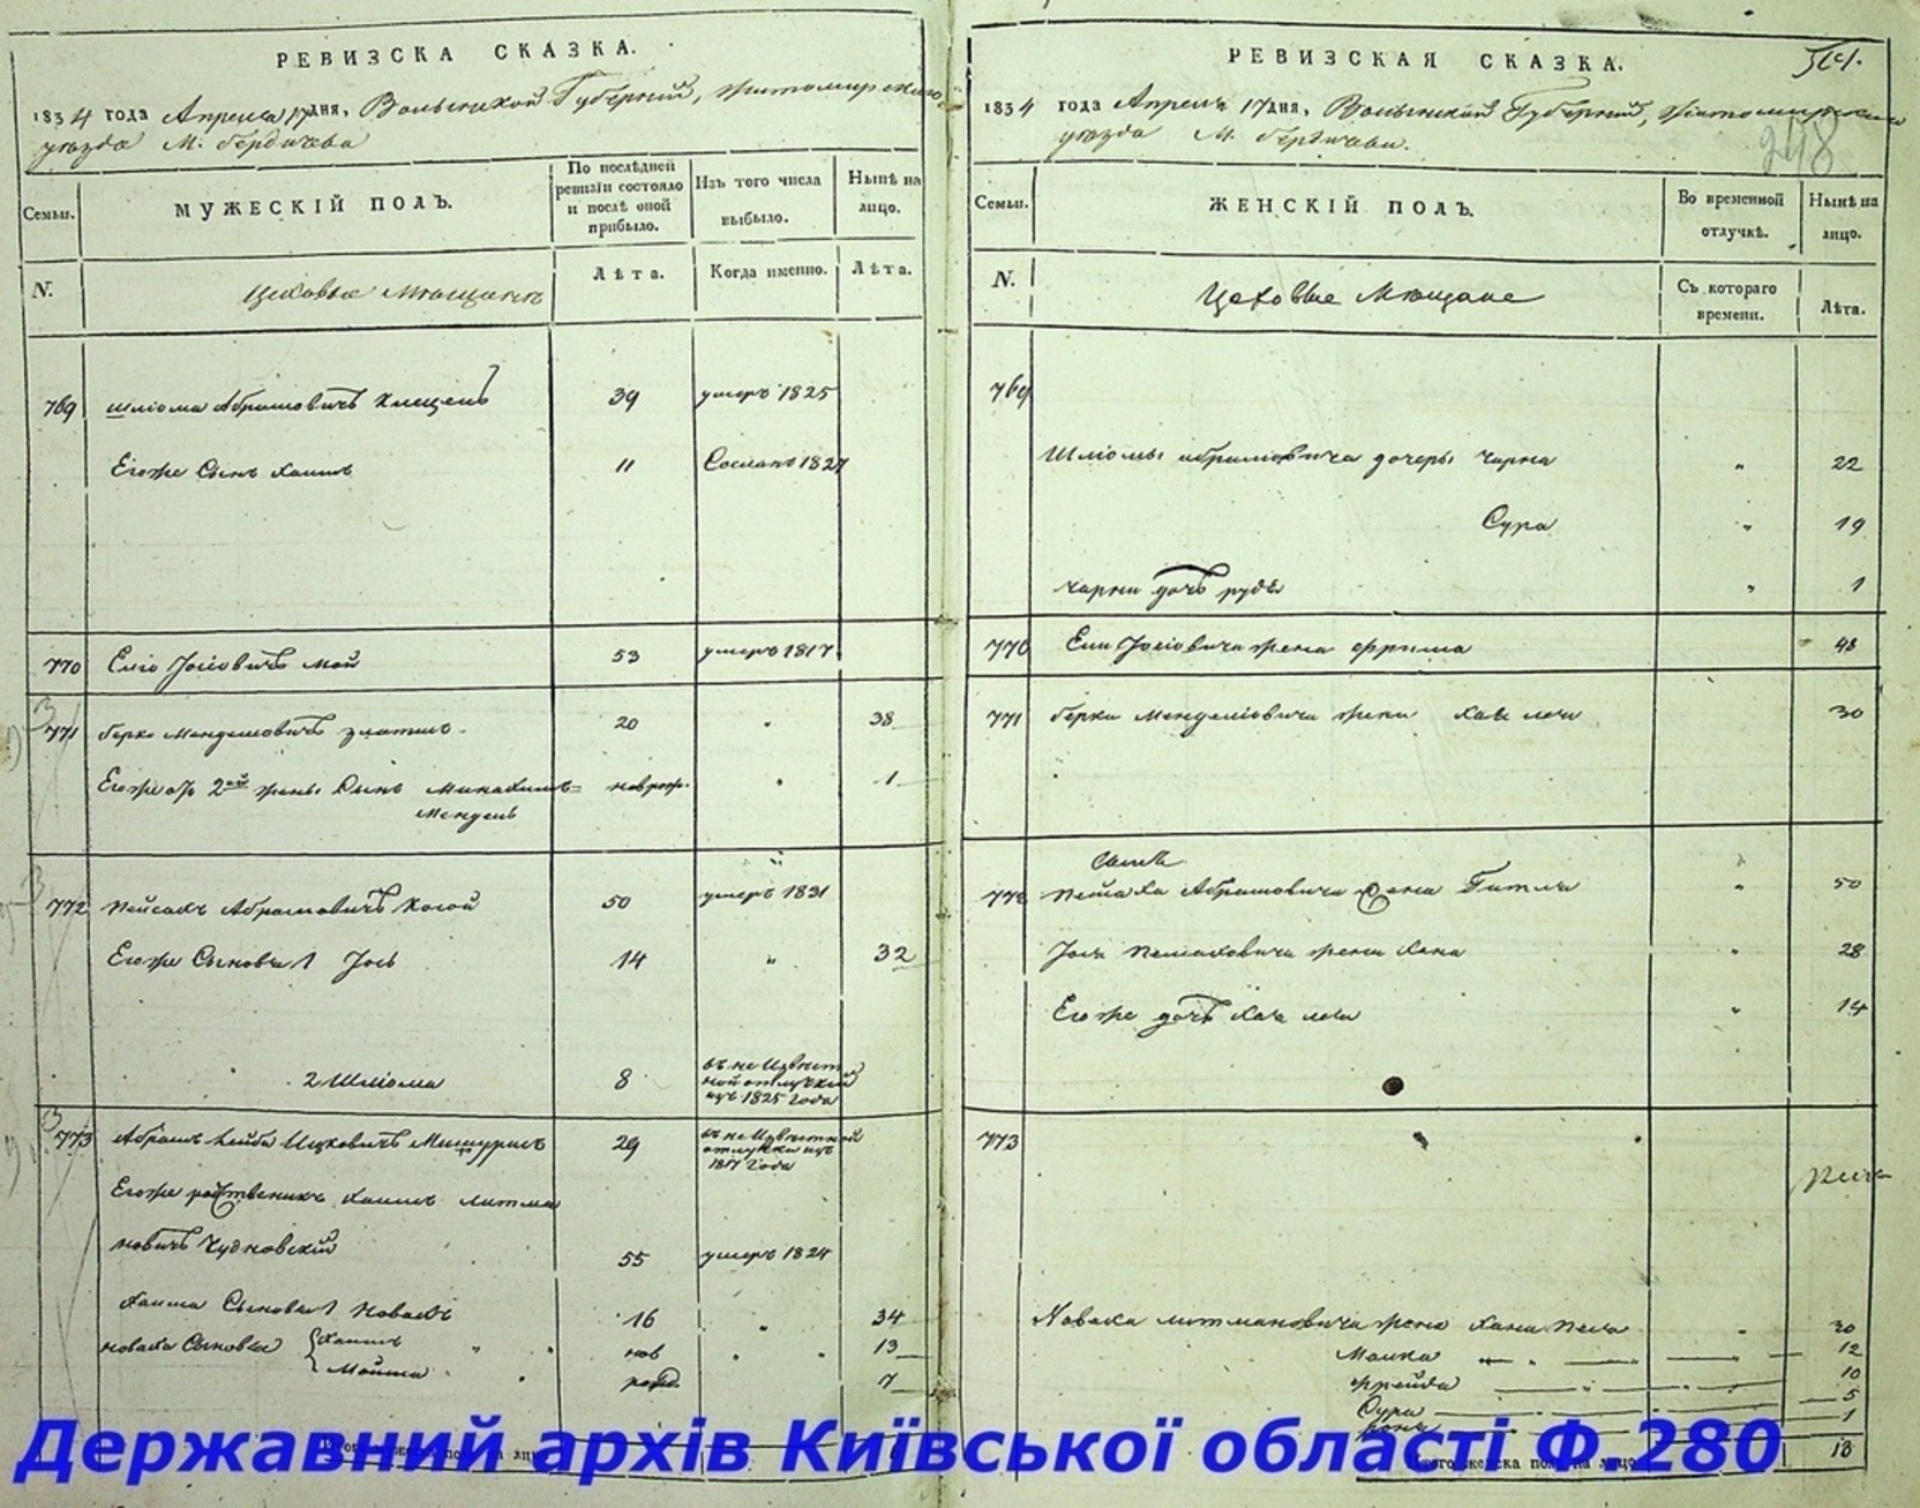 РЕВИЗСКА СКАЗКА.
1834 года Апреля 17 дня, Волынской Губерний, Житомирского
уезда М. Бердичева
Семьи.
МУЖЕСКІЙ ПОЛЪ.
По послѣдней
ревизіи состояло
и послѣ оной
прибыло.
Изъ того числа
выбыло.
Нынѣ на
лицо.
N.
Цеховые Мещане
Лѣта.
Когда именно.
Лѣта.
769 Шліома Абрамовичъ 39 умеръ 1825
Егоже Сынъ Хаимъ 11 Сосланъ 1827
770 Еліо Іосіовичъ Мой 53 умеръ 1817
771 Берко Менделіовичъ 20 " 38
Егоже отъ 2ой жены Сынъ Минахимъ= новрож. " 1
Мендель
772 Пейсахъ Абрамовичъ Косой 50 умеръ 1831
Егоже Сыновья 1 Іось 14 " 32
2 Шліома 8 въ не Извѣст
ной отлучки
изъ 1825 Года
773 Абрамъ Лейба Ицковичъ 29 въ не Извѣстной
отлучки изъ
1817 Года
Егоже Хаимъ Литма
новичъ Чудновскій 55 умеръ 1824
Хаима Сыновья 1 Новахъ 16 " 34
Новаха Сыновья Хаимъ " нов " 13
Мойша рожд. 7
РЕВИЗСКАЯ СКАЗКА.
248
1834 года Апреля 17 дня, Волынской Губерний, Житомирскаго
уезда М. Бердичева.
Семьи.
ЖЕНСКІЙ ПОЛЪ.
Во временной
отлучкѣ.
Нынѣ на
лицо.
N.
Цеховые Мещане
Съ котораго
времени.
Лѣта.
769
Шліомы Абрамовича дочеры Чарна " 22
Сура " 19
Чарни дочъ " 1
770 Ели Іосіовича жена Фрима 48
771 Берка Менделіовича жена Хая Леа 30
772 Абрамовича жена Гитля " 50
Іося Пейсаховича жена Хана " 28
Егоже дочъ Хая Леа " 14
773
Новаха Литмановича жена Хана Песа " 30
Малка 12
Фрейда 10
Сура 5
1
женска полу на лицо 18
Державний архів Київської області Ф.280